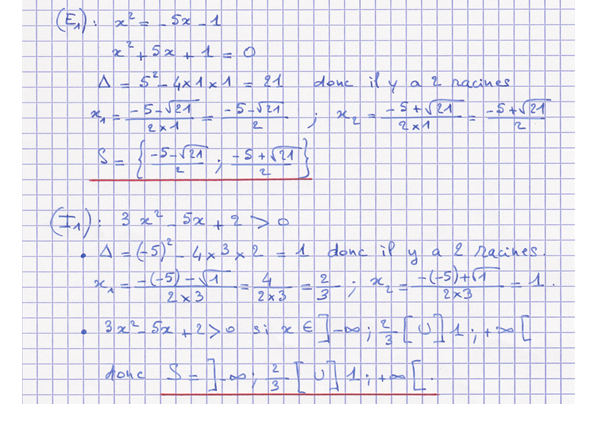 (E₁): x² = -5x - 1
x² + 5x + 1 = 0
Δ = 5² - 4×1×1 = 21 donc il y a 2 racines
x₁ = (-5-√21)/(2×1) = (-5-√21)/2 ; x₂ = (-5+√21)/(2×1) = (-5+√21)/2
S = { (-5-√21)/2 ; (-5+√21)/2 }
(I₁): 3x² - 5x + 2 > 0
• Δ = (-5)² - 4×3×2 = 1 donc il y a 2 racines.
x₁ = (-(-5)-√1)/(2×3) = 4/(2×3) = 2/3 ; x₂ = (-(-5)+√1)/(2×3) = 1.
• 3x² - 5x + 2 > 0 si x ∈ ]-∞ ; 2/3[ ∪ ]1 ; +∞[
donc S = ]-∞ ; 2/3[ ∪ ]1 ; +∞[.